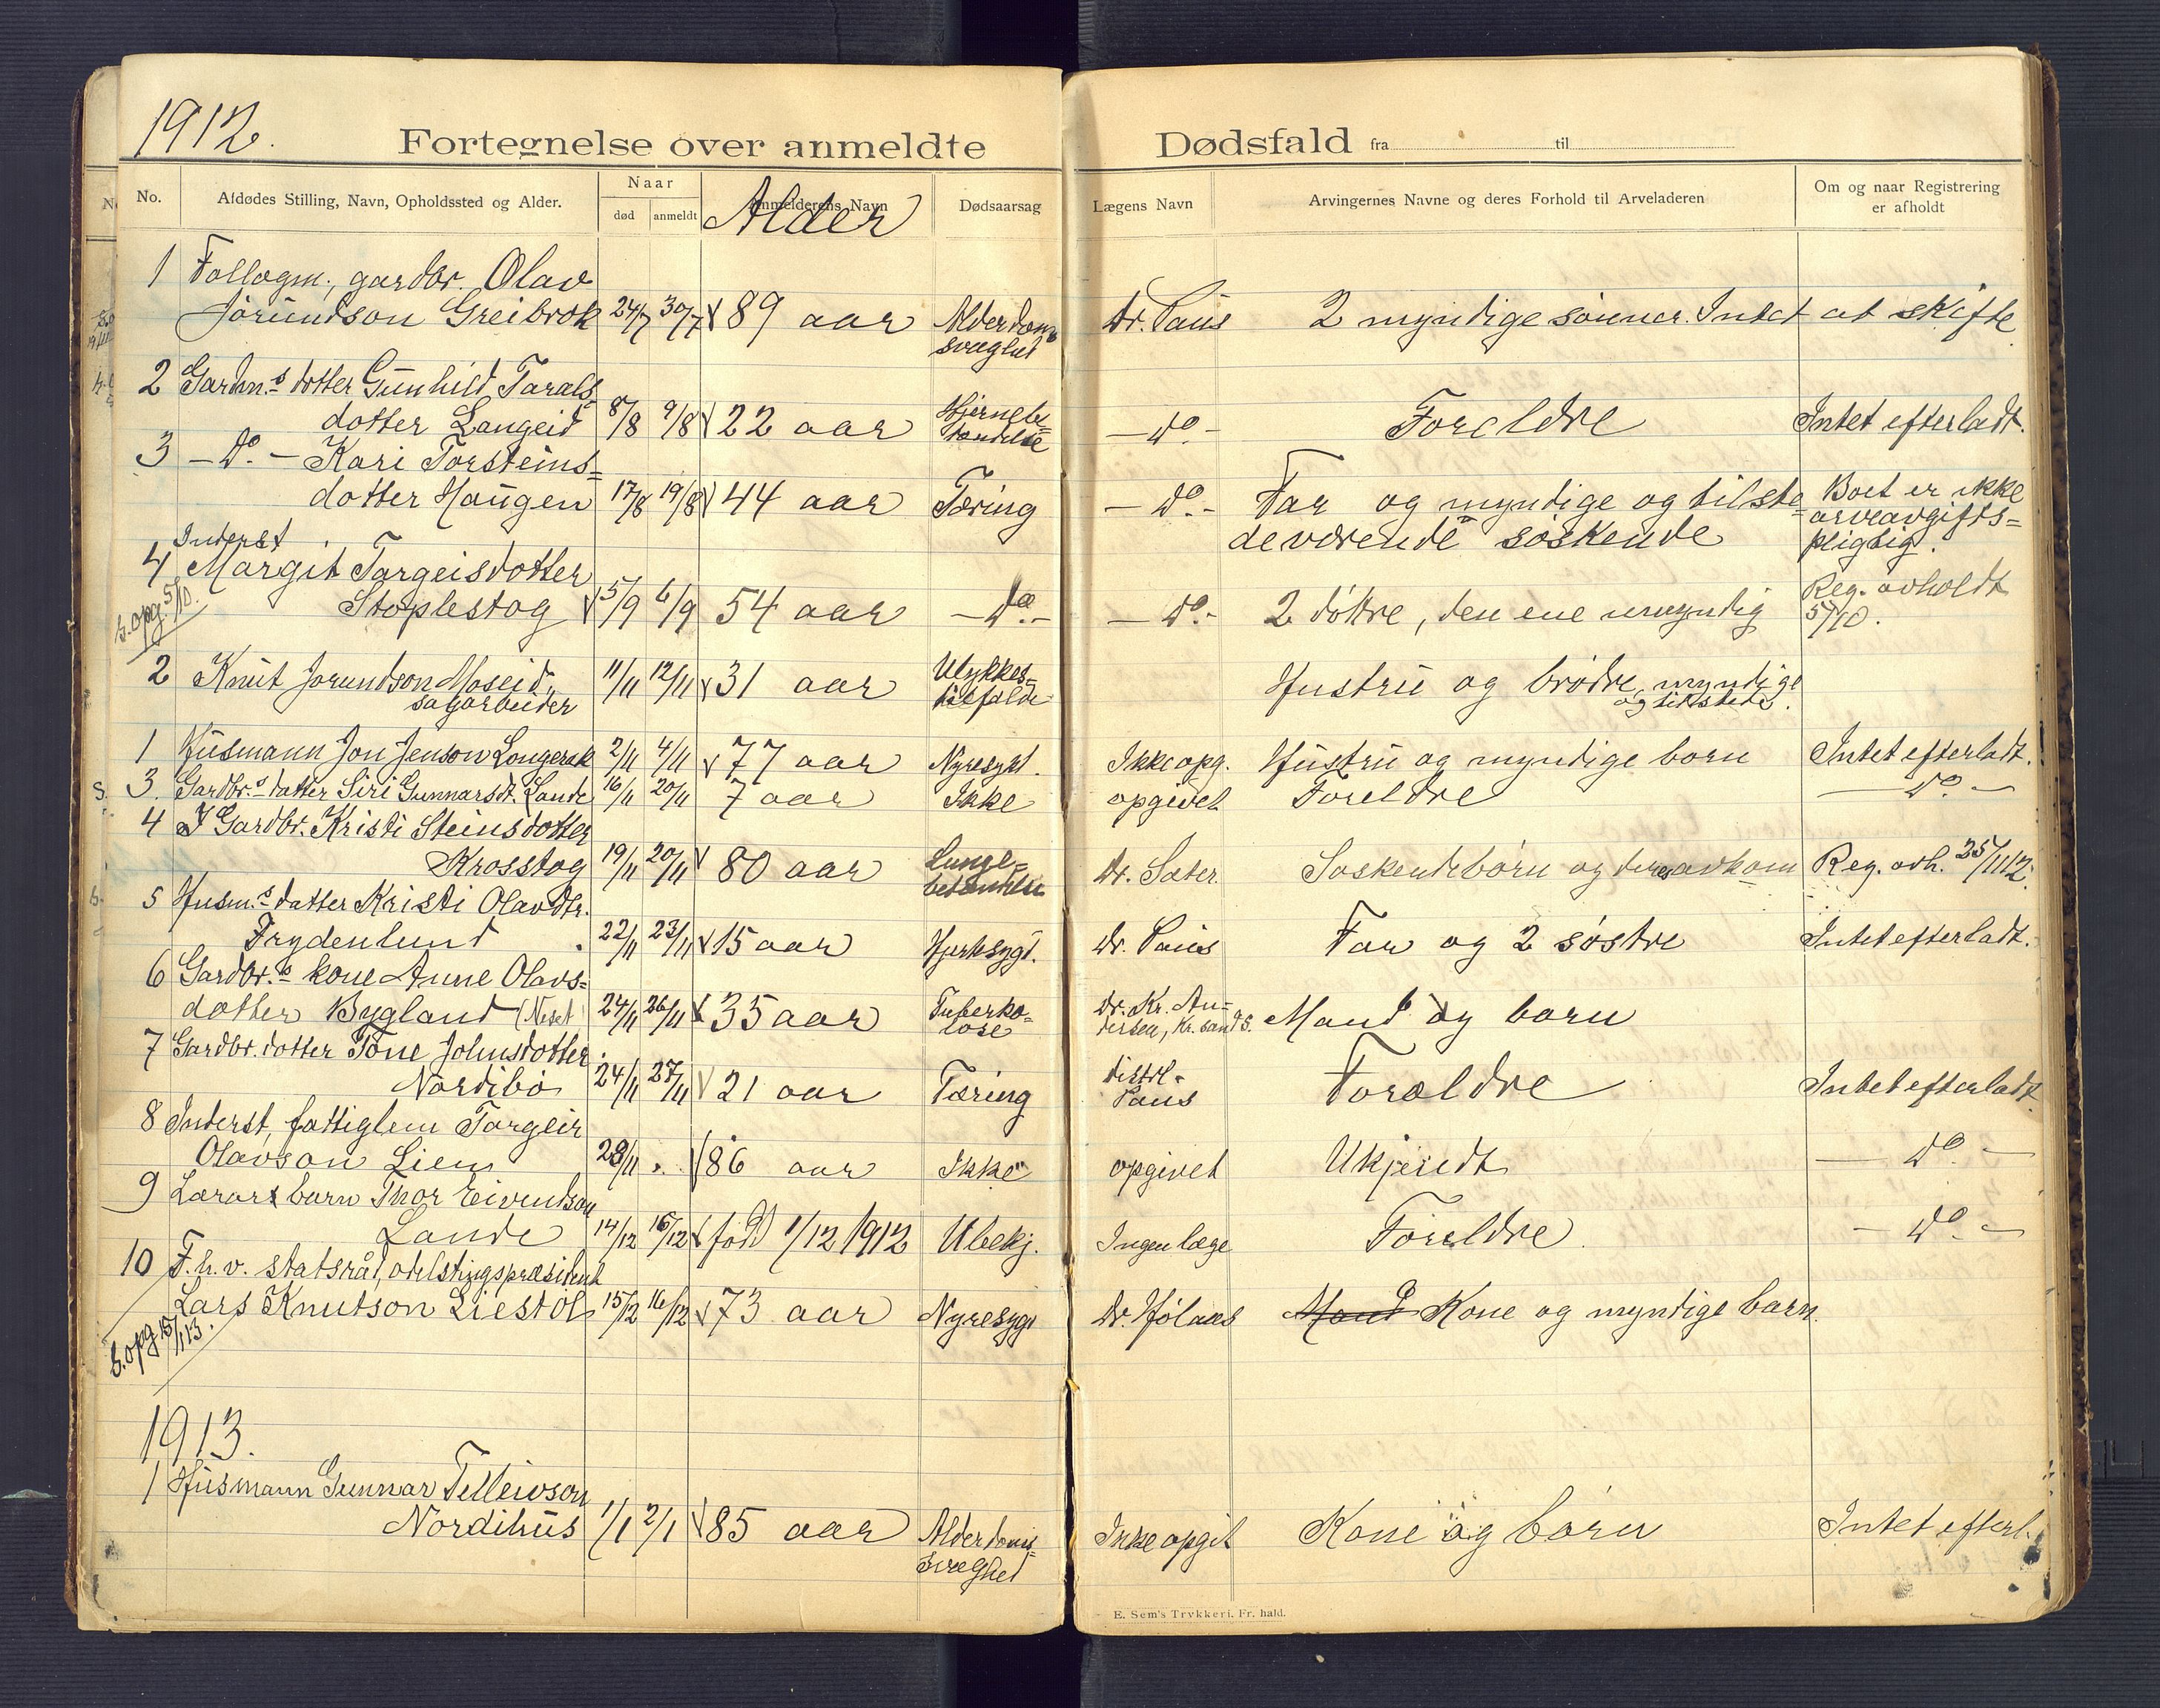 1912.
Fortegnelse over anmeldte Dødsfald fra til
No. Afdødes Stilling, Navn, Opholdssted og Alder. Naar død anmeldt Anmelderens Navn Alder Dødsaarsag Lægens Navn Arvingernes Navne og deres Forhold til Arveladeren Om og naar Registrering er afholdt
1 Follogm., gardbr. Olav
Jørundson Greibrok 24/7 30/7 89 aar Alderdoms svaghet Dr. Paus 2 myndige sønner. Intet at skifte
2 Gardm.s dotter Gunhild Tarals-
dotter Langeid 8/8 9/8 22 aar Hjernebe-tændelse —do.— Foreldre Intet efterladt.
3 —do.— Kari Torsteins-
dotter Haugen 17/8 19/8 44 aar Tæring —do.— Far og myndige og tilste-
deværende søskende Boet er ikke arveavgifts-pligtig.
Inderst
4 Margit Targeisdotter
Stoplestog 5/9 6/9 54 aar —do.— —do.— 2 døttre, den ene umyndig Reg. avholdt 5/10.
S. opg. 5/10.
2 Knut Jorundson Moseid,
sagarbeider 11/11 12/11 31 aar Ulykkes-tilfelde Hustru og brødre, myndige og tilstede.
1 Husmann Jon Jenson Longerak 2/11 4/11 77 aar Nyresykd. Ikke opg. Hustru og myndige born Intet efterladt.
3. Gardbr.s datter Siri Gunnarsdt. Lande 16/11 20/11 7 aar Ikke opgivet Foreldre —do.—
4 Gardbr. Kristi Steinsdotter
Krosstog 19/11 20/11 80 aar Lunge-betændelse Dr. Sæter Søskendebørn og deres avkom Reg. avh. 25/11 12.
5 Husm.s datter Kristi Olavdtr.
Frydenlund 22/11 23/11 15 aar Hjertesygd. Dr. Paus Far og 2 søstre Intet efterladt.
6 Gardbr.s kone Anne Olavs-
dotter Bygland (Neset 24/11 26/11 35 aar Tuberko-lose Dr. Kr. An-dersen, Kr.sand S. Mand og 6 born
7 Gardbr. dotter Tone Johnsdotter
Nordibø 24/11 27/11 21 aar Tæring Distrl. Paus Foreldre Intet efterladt.
8 Inderst, fattiglem Torgeir
Olavson Liem 28/11 86 aar Ikke opgivet Ukjendt —do.—
9 Lærars barn Thor Eivindson
Lande 14/12 16/12 fød 1/12 1912 Ubekj. Ingen læge Foreldre —do.—
10 F.h.v. statsråd, odelstingspræsident
Lars Knutson Liestøl 15/12 16/12 73 aar Nyresygd Dr. Hølaas Mand Kone og myndige barn.
S. opg 15/1 13.
1913.
1 Husmann Gunnar Telleivson
Nordihus 1/1 2/1 85 aar Alderdoms-svaghet Ikke opgit Kone og børn Intet efterl.
E. Sem's Trykkeri. Fr. hald.